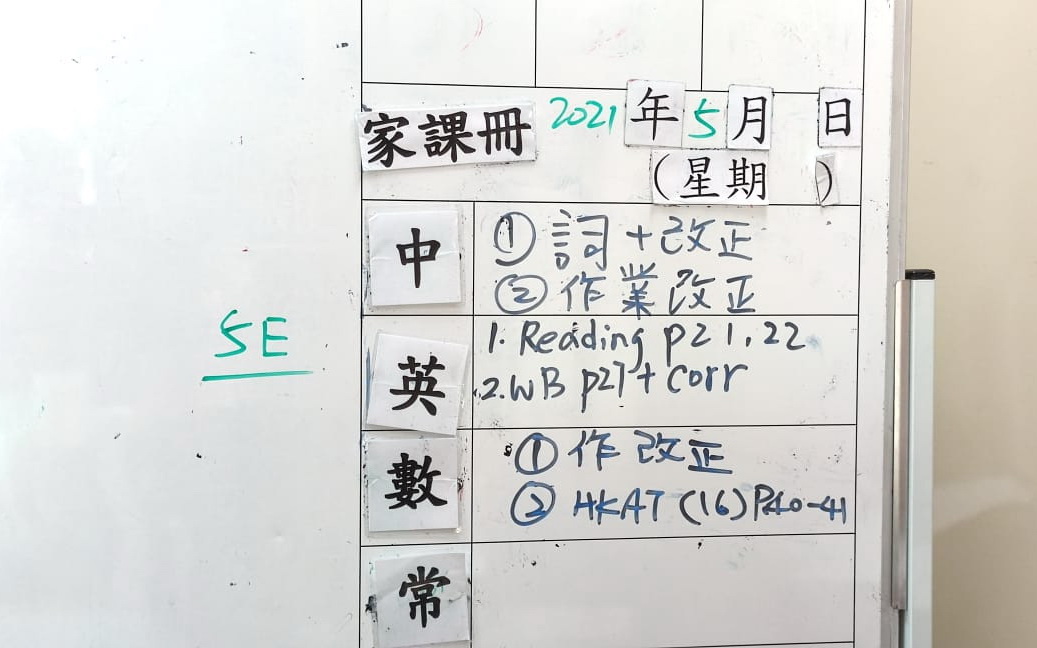 家課冊 2021年5月 日
(星期 )
中
① 詞+改正
② 作業改正
5E
英
1. Reading p21,22
2. WB p27 + corr
數
① 作改正
② HKAT (16) P40-41
常